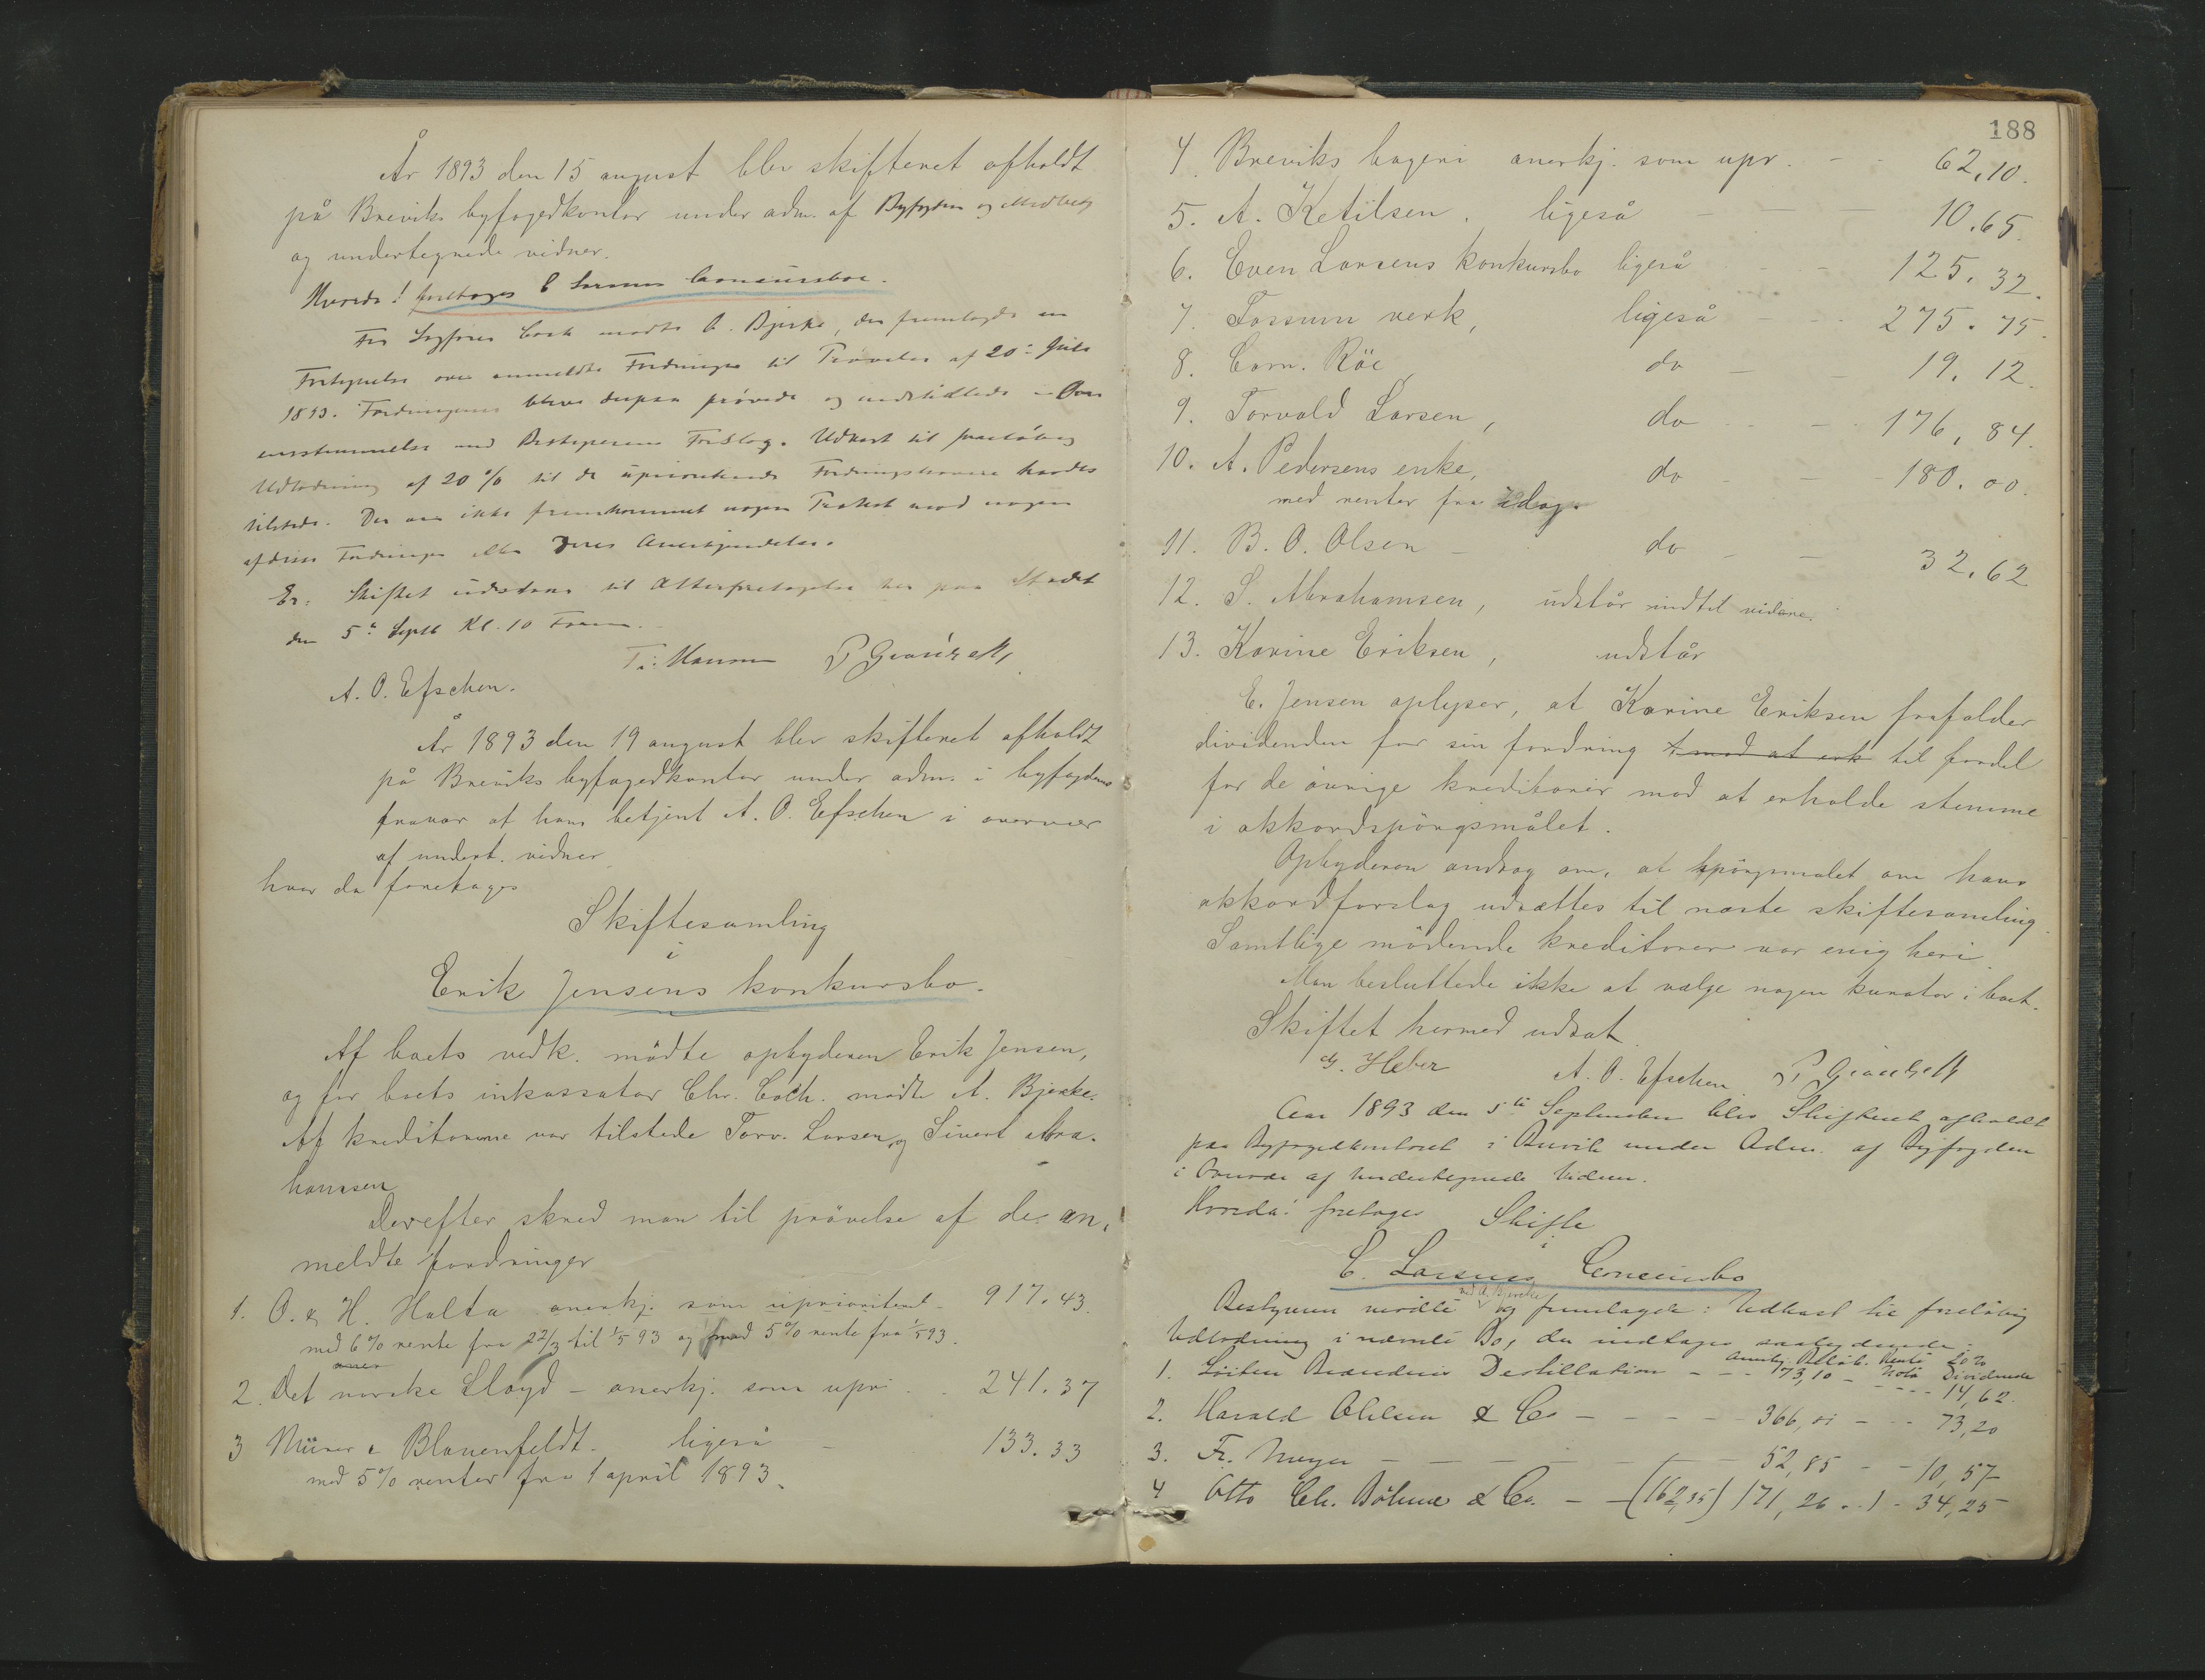 År 1893 den 15 august blev skifteret afholdt
på Breviks byfogedkontor under adm. af Byfogden og Medbetj
og undertegnede vidner.
Hvorda! foretoges E Larsens Concursboe.
For Sagfører Coch mødte A. Bjerke, der fremlagde en
Fortegnelse over anmeldte Fordringer til Prøvelse af 20de Juli
1893. Fordringerne bleve derpaa prøvede og modstilledes i Over
ensstemmelse med Bestyrerens Forslag. Udkast til foreløbig
Udlodning af 20 % til de upriorite­rede Fordringshavere havdes
tilstede. Der var ikke fremkommet nogen Protest mod nogen
af disse Fordringer eller deres Anerkjendelse.
Er: Skiftet udsattes til Atterforetagelse her paa Stedet
den 5te Septb Kl. 10 Form.
A. O. Efschen.
År 1893 den 19 august blev skifteret afholdt
på Breviks byfogedkontor under adm. i byfogdens
fravær af hans betjent A. O. Efschen i overvær
af undert. vidner
hvor da foretages
Skiftesamling
i
Erik Jensens konkursbo.
Af boets vedk. mødte opbyderen Erik Jensen,
og for boets inkassator Chr. Coch. mødte A. Bjerke.
Af kreditorerne var tilstede Torv. Larsen og Sivert Abra-
hamsen
Derefter skred man til prøvelse af de an-
meldte fordringer
1. O. & H. Holta anerkj. som uprioritent - 917.43.
med 6% rente fra 22/3 til 1/5 93 og med 5% rente fra 1/5 93.
2. Det norske Lloyd - anerkj. som upri . . 241.37
3 Müner & Blauenfeldt - ligeså - 133.33
med 5% renter fra 1 april 1893.
188
4. Breviks bageri anerkj. som upr. - - 62,10.
5. A. Ketilsen. ligeså - - 10.65.
6. Even Larsens konkursbo ligeså - - 125.32.
7. Fossum verk, ligeså - - 275.75.
8. Corn. Röe, do - - 19.12.
9. Torvald Larsen, do - - 176,84.
10. A. Pedersens enke, do - - 180.00.
med renter fra idag.
11. B. O. Olsen - do - - 32.62
12. S. Abrahamsen, udstår indtil videre.
13. Karine Eriksen, udstår
E. Jensen oplyser, at Karine Eriksen frafalder
dividenden for sin fordring til fordel
for de øvrige kreditorer mod at erholde stemme
i akkordspörgsmålet.
Opbyderen androg om, at spörgsmalet om hans
akkordforslag udsættes til næste skiftesamling.
Samtlige mödende kreditorer var enig heri.
Man besluttede ikke at vælge nogen kurator i boet.
Skiftet hermed udsat.
G. Heber A. O. Efschen
Aar 1893 den 5te September blev Skifteret afholdt
paa Byfogedkontoret i Brevik under Adm. af Byfogden
i Overvær af undertegnede Vidner.
Hvorda! foretages Skifte
i
E. Larsens Concursbo
Bestyreren mødte ved A. Bjerke og fremlagde: Udkast til foreløbig
Udlodning i nævnte Bo, der indtages saalydende:
Anerkj. Beløb. Rente 20 %
Dividende
1. Löiten Brænderis Destillation - - - 73,10 - - - - 14,62.
2. Harald Olelsen & Co - - - - 366,01 - - - 73,20
3. Fr. Meyer - - - - - - 52,85 - - 10,57
4 Otto Chr. Böhme & Co. - - (162,35) 171,26 . - 34,25